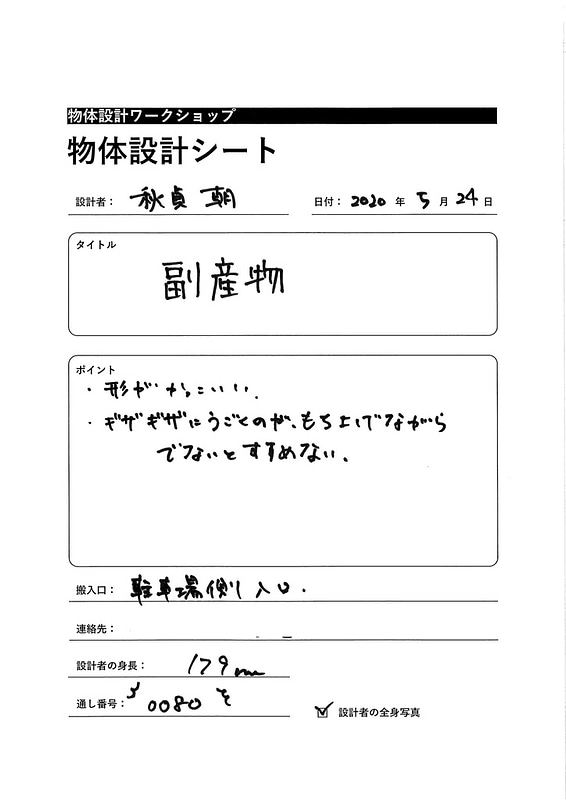 物体設計ワークショップ
物体設計シート
設計者： 秋貞 朝
日付： 2020 年 5 月 24 日
タイトル
副産物
ポイント
・形がかっこいい.
・ギザギザにうごくのが、もち上げながら
でないとすすめない.
搬入口： 駐車場側入口.
連絡先：
設計者の身長： 179
通し番号： 0080
設計者の全身写真